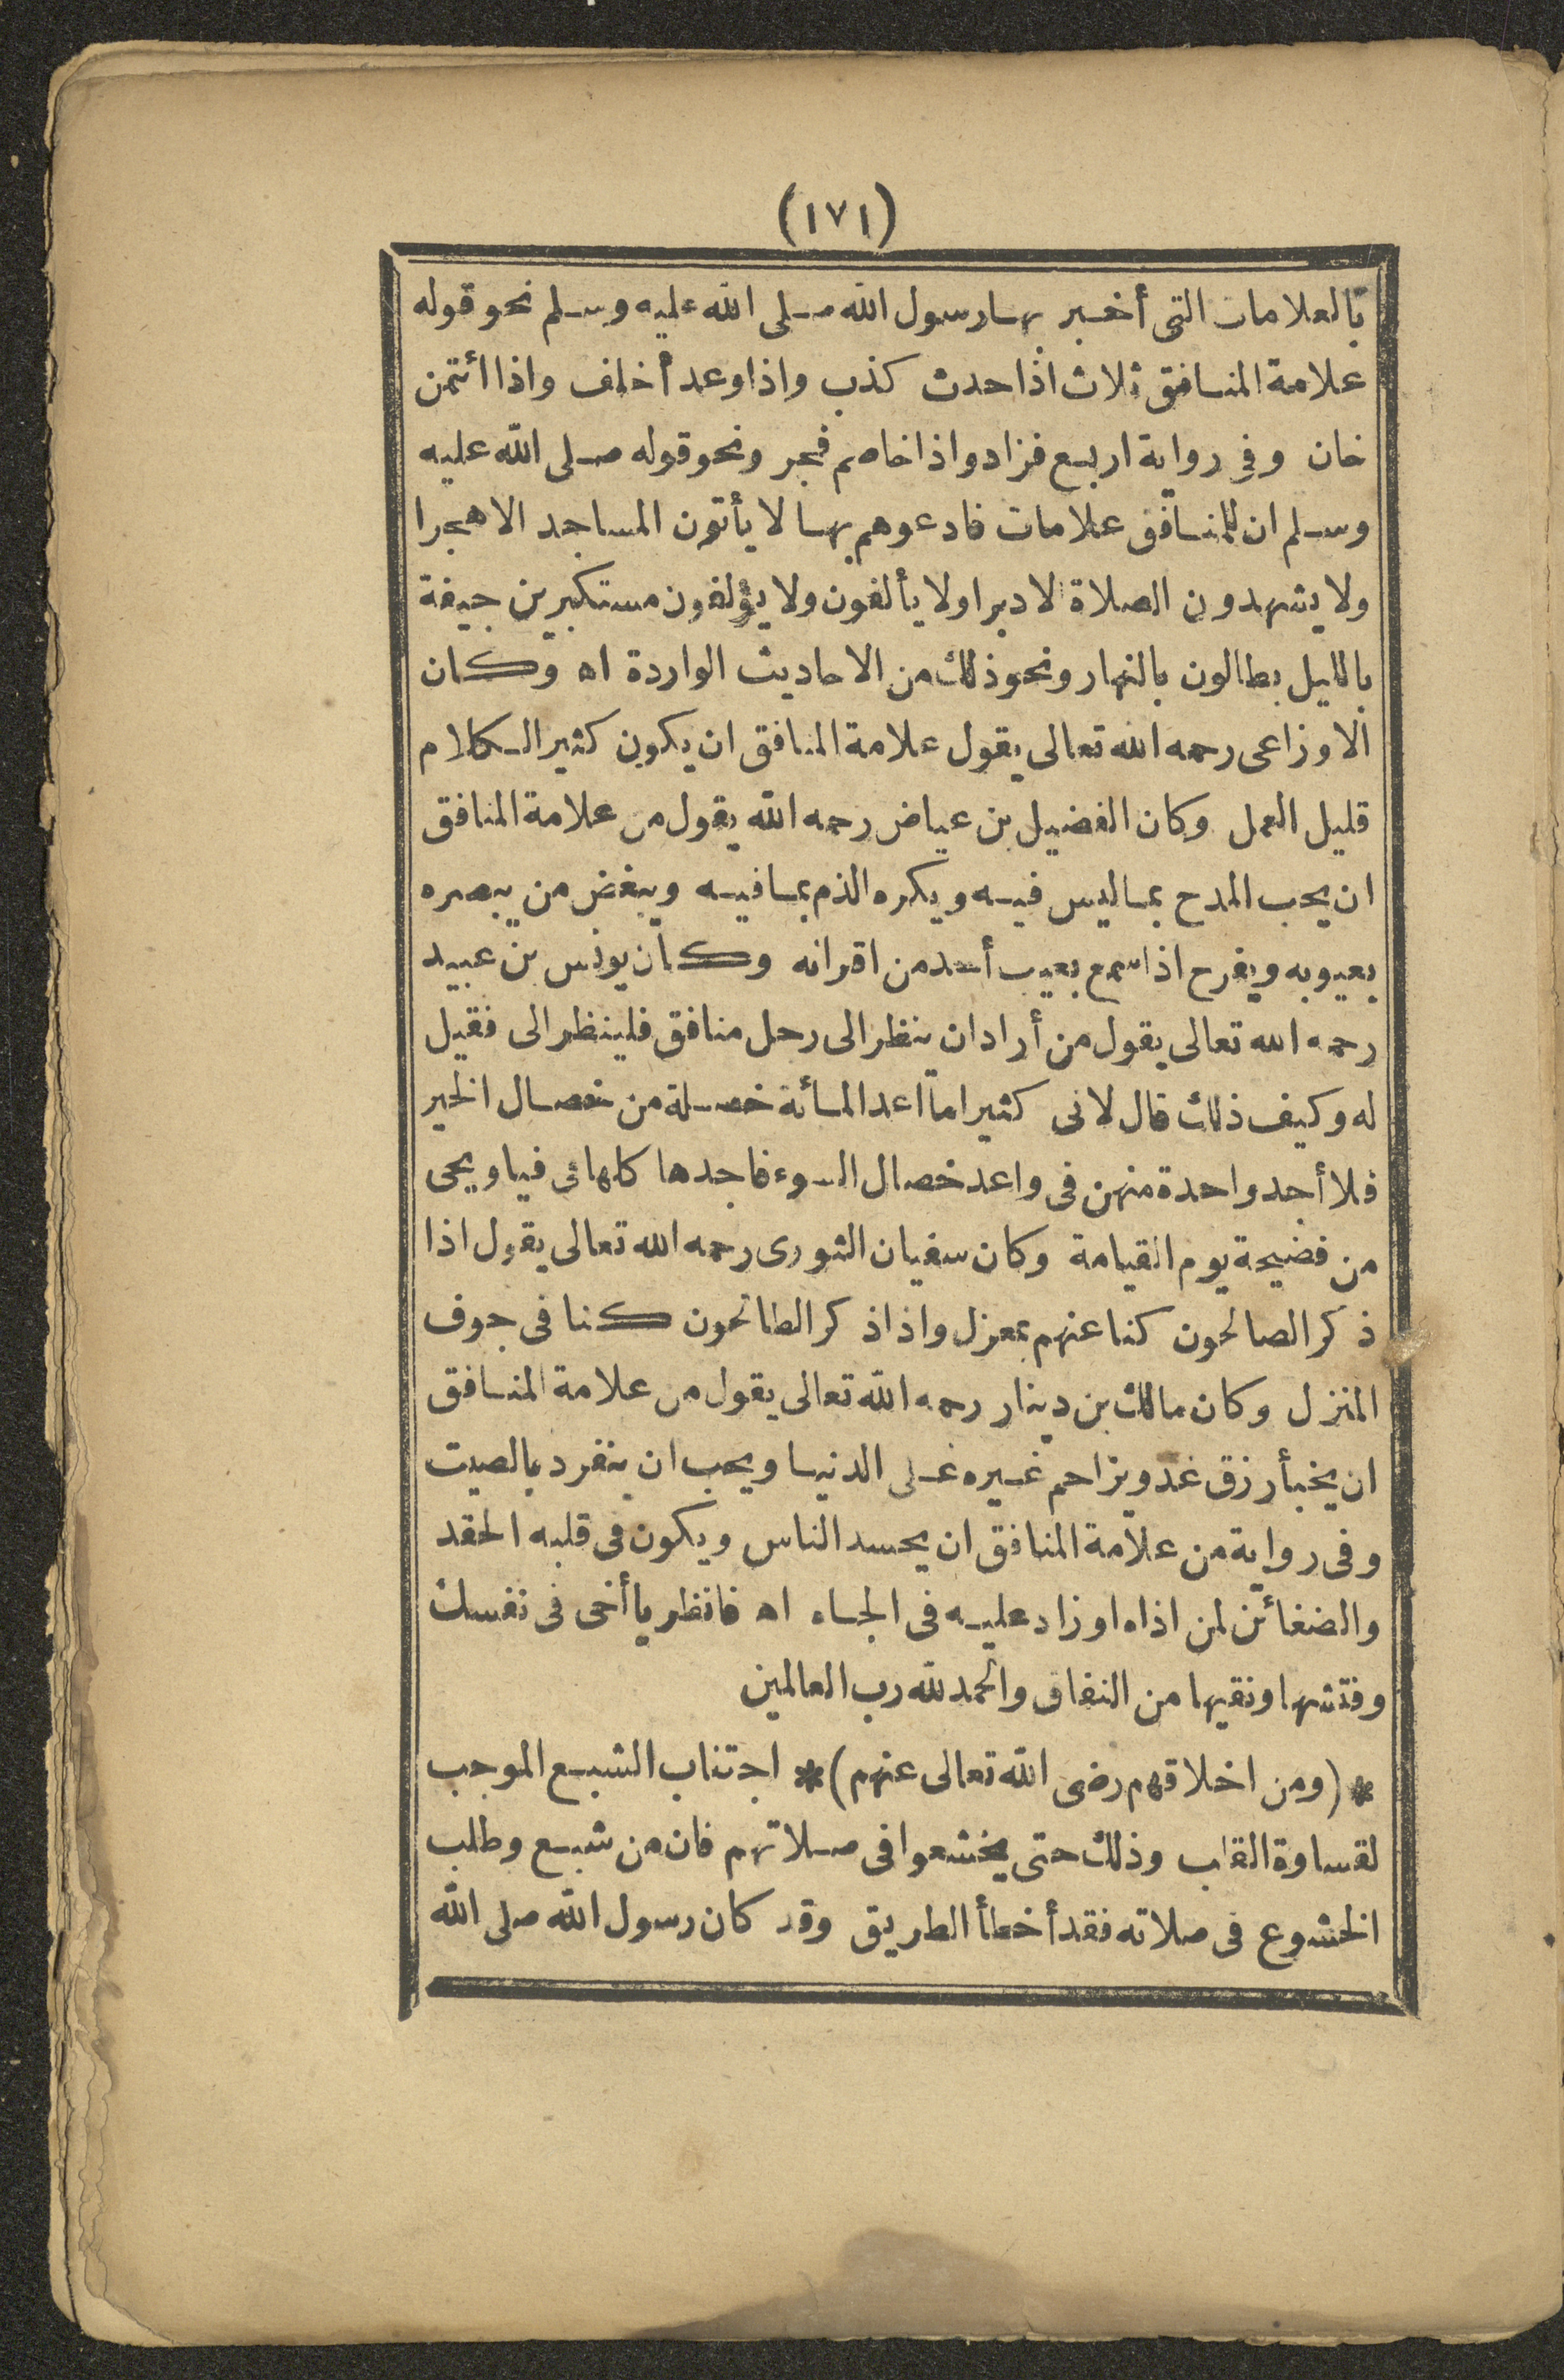 (١٧١)
بالعلامات التى أخبر بها رسول الله صلى الله عليه وسلم نحو قوله
علامة المنافق ثلاث اذا حدث كذب واذا وعد أخلف واذا ائتمن
خان وفى رواية اربع فزاد واذا خاصم فجر ونحو قوله صلى الله عليه
وسلم ان للمنافق علامات فادعوهم بها لا يأتون المساجد الا هجرا
ولا يشهدون الصلاة الا دبرا ولا يألفون ولا يؤلفون مستكبرين جيفة
بالليل بطالون بالنهار ونحو ذلك من الاحاديث الواردة اه وكان
الاوزاعى رحمه الله تعالى يقول علامة المنافق ان يكون كثير الكلام
قليل العمل وكان الفضيل بن عياض رحمه الله يقول من علامة المنافق
ان يحب المدح بما ليس فيه ويكره الذم بما فيه ويبغض من يبصره
بعيوبه ويفرح اذا سمع بعيب أحد من اقرانه وكان يونس بن عبيد
رحمه الله تعالى يقول من أراد ان ينظر الى رحل منافق فلينظر الى فقيل
له وكيف ذلك قال لانى كثيرا ما اعد المائة خصلة من خصال الخير
فلا أجد واحدة منهن فى واعد خصال السوء فاجدها كلها فى فيا ويحى
من فضيحة يوم القيامة وكان سفيان الثورى رحمه الله تعالى يقول اذا
ذكر الصالحون كنا عنهم بمعزل واذا ذكر الطالحون كنا فى جوف
المنزل وكان مالك بن دينار رحمه الله تعالى يقول من علامة المنافق
ان يخبأ رزق غد ويزاحم غيره على الدنيا ويحب ان ينفرد بالصيت
وفى رواية من علامة المنافق ان يحسد الناس ويكون فى قلبه الحقد
والضغائن لمن اذاه او زاد عليه فى الجاه اه فانظر يا أخى فى نفسك
وفتشها ونقيها من النفاق والحمد لله رب العالمين
* (ومن اخلاقهم رضى الله تعالى عنهم) * اجتناب الشبع الموجب
لقساوة القلب وذلك حتى يخشعوا فى صلاتهم فان من شبع وطلب
الخشوع فى صلاته فقد أخطأ الطريق وقد كان رسول الله صلى الله